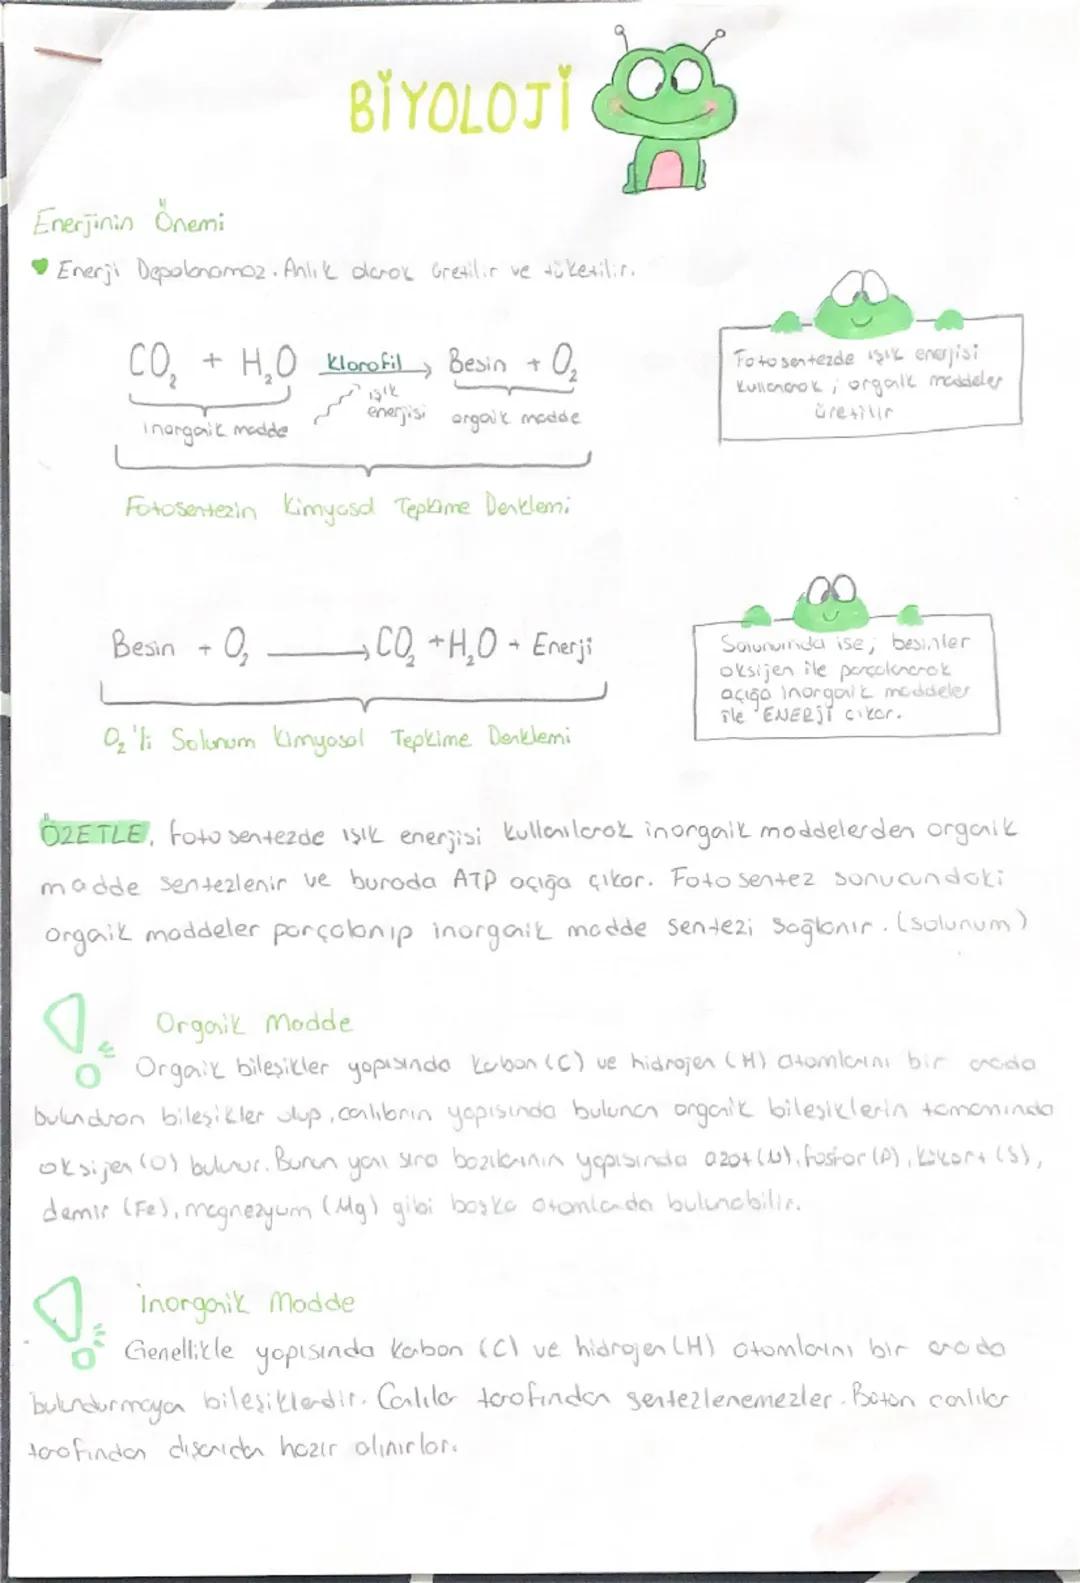 BİYOLOJİ
Enerjinin Önemi
Enerji Depolanamaz. Anlık olarak üretilir ve tüketilir.
CO₂ + H₂O Klorofil → Besin + O₂
ışık
enerjisi
inorgaik madde
orgaik madde
Fotosentezin Kimyasal Tepkime Denklemi
Fotosentezde ışık enerjisi
kullanarak ; orgaik maddeler
üretilir
Besin + O₂ → CO₂ + H₂O + Enerji
O₂'li Solunum Kimyasal Tepkime Denklemi
Solunumda ise; besinler
oksijen ile parçalanarak
açığa inorgaik maddeler
ile ENERJİ çıkar.
ÖZETLE, fotosentezde ışık enerjisi kullanılarak inorgaik maddelerden orgaik
madde sentezlenir ve burada ATP açığa çıkar. Fotosentez sonucundaki
orgaik maddeler parçalanıp inorgaik madde sentezi sağlanır. (solunum)
Orgaik Madde
Orgaik bileşikler yapısında karbon (C) ve hidrojen (H) atomlarını bir arada
bulunduran bileşikler olup, canlıların yapısında bulunan orgaik bileşiklerin tamamında
oksijen (O) bulunur. Bunun yanı sıra bazılarının yapısında azot (N), fosfor (P), kükürt (S),
demir (Fe), magnezyum (Mg) gibi başka atomlarda bulunabilir.
İnorganik Madde
Genellikle yapısında karbon (C) ve hidrojen (H) atomlarını bir arada
bulundurmayan bileşiklerdir. Canlılar tarafından sentezlenemezler. Bütün canlılar
tarafından dışarıdan hazır alınırlar.